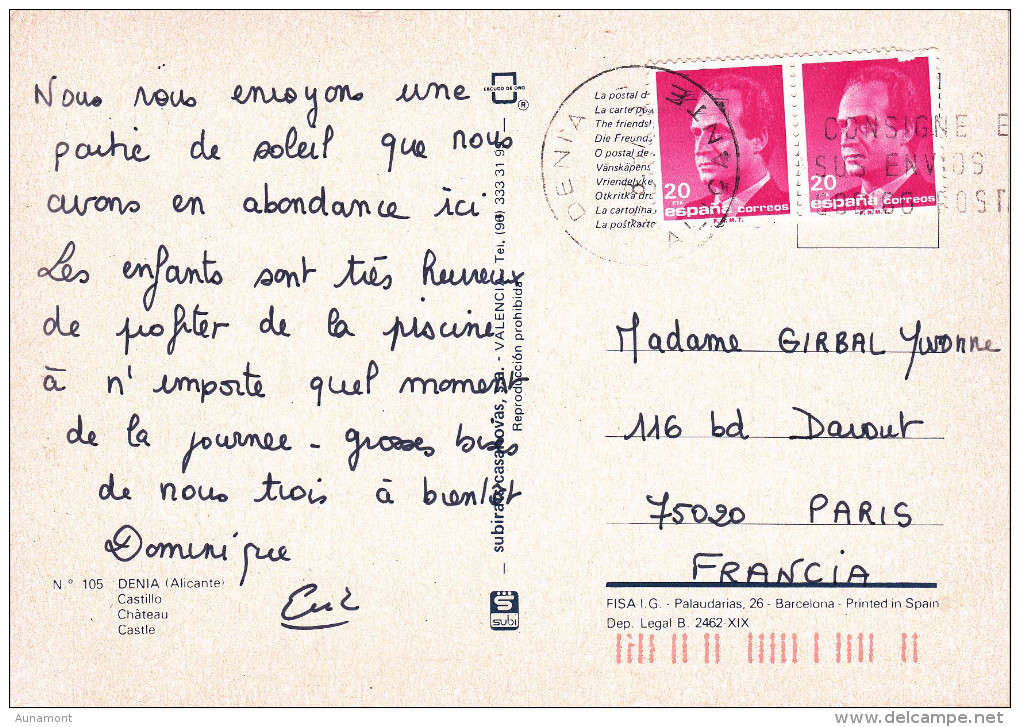 Nous vous envoyons une
partie de soleil que nous
avons en abondance ici
Les enfants sont très heureux
de profiter de la piscine
à n'importe quel moment
de la journee - grosses bises
de nous trois à bientôt
Dominique
N° 105 DENIA (Alicante)
Castillo
Château
Castle
ESCUDO DE ORO
®
subirats casanovas, s.a. - VALENCIA - Tel. (96) 333 31 95 —
Reproducción prohibida
subi
La postal d
La carte po
The friends
Die Freund
O postal de
Vänskåpens
Vriendelyke
Otkritka dr
La cartolina
La poŝtkarto
DENIA
ALICANTE
20
PTA
españa correos
F.N.M.T.
20
españa correos
F.N.M.T.
CONSIGNE E
SUS ENVIOS
Madame GIRBAL Yvonne
116 bd Davout
75020 PARIS
FRANCIA
FISA I.G. - Palaudarias, 26 - Barcelona - Printed in Spain
Dep. Legal B. 2462-XIX
Aunamont
delcampe.net